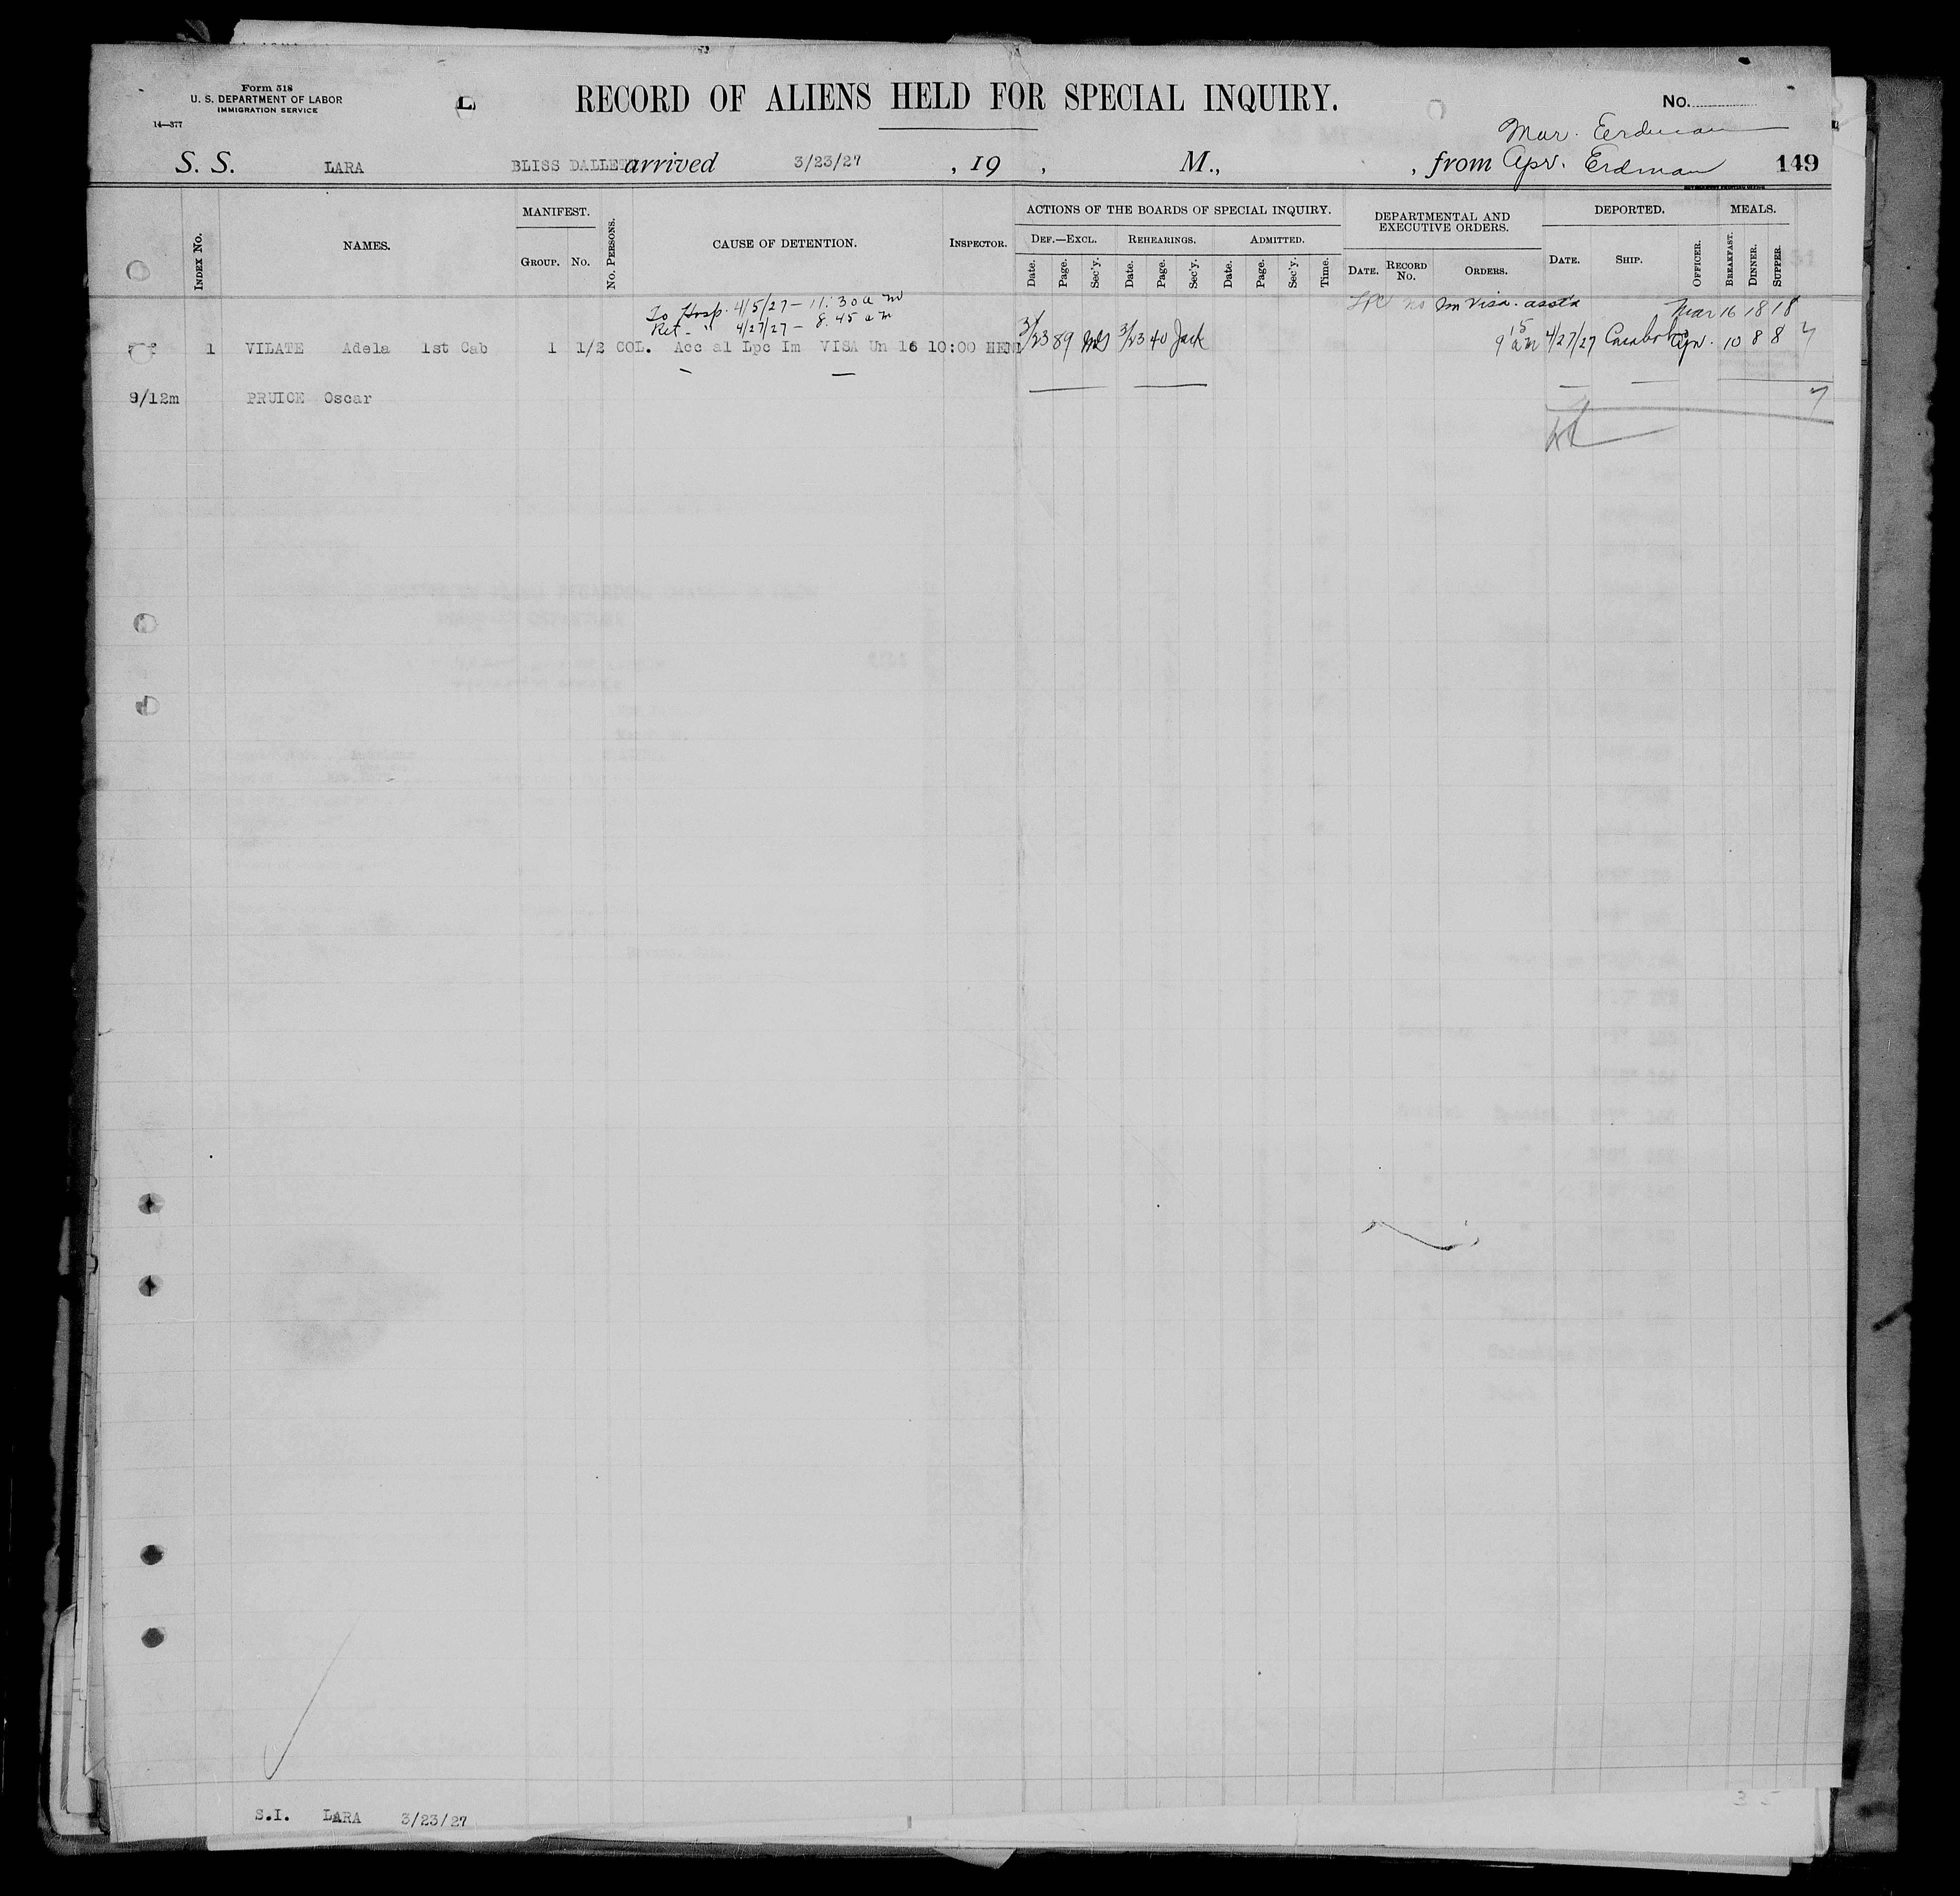 Form 518
U. S. DEPARTMENT OF LABOR
IMMIGRATION SERVICE
14—377
L
RECORD OF ALIENS HELD FOR SPECIAL INQUIRY.
No.
Mar. Eerdman
S. S. LARA BLISS DALLET arrived 3/23/27 , 19 , M., , from Apr. Erdman 149
INDEX No.
NAMES.
MANIFEST.
GROUP. No.
No. PERSONS.
CAUSE OF DETENTION.
INSPECTOR.
ACTIONS OF THE BOARDS OF SPECIAL INQUIRY.
DEF.—EXCL. REHEARINGS. ADMITTED.
Date. Page. Sec'y. Date. Page. Sec'y. Date. Page. Sec'y. Time.
DEPARTMENTAL AND
EXECUTIVE ORDERS.
DATE. RECORD No. ORDERS.
DEPORTED.
DATE. SHIP. OFFICER.
MEALS.
BREAKFAST. DINNER. SUPPER.
To Hosp. 4/5/27 — 11:30 am
Ret — " 4/27/27 — 8.45 am
LPC no Im Visa. asst'd
Mar 16 18 18
1 VILATE Adela 1st Cab 1 1/2 COL. Acc al Lpc Im VISA Un 16 10:00 HEN 3/23 89 3/23 40 Jack 9 15 am 4/27/27 Carabobo Apr. 10 8 8
9/12m PRUICE Oscar
S.I. LARA 3/23/27
35